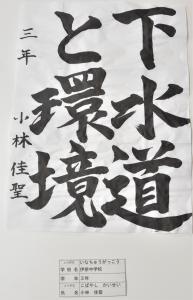 下水道
と環境
三年
小林佳聖
ふりがな いなちゅうがっこう
学校名 伊奈中学校
学年 3年
ふりがな こばやし かいせい
氏名 小林 佳聖